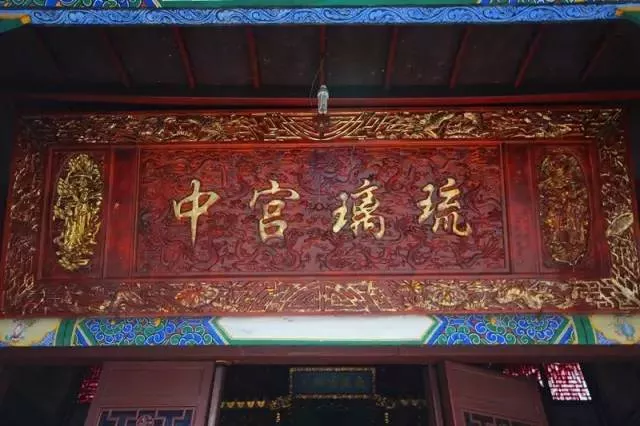 琉璃宫中